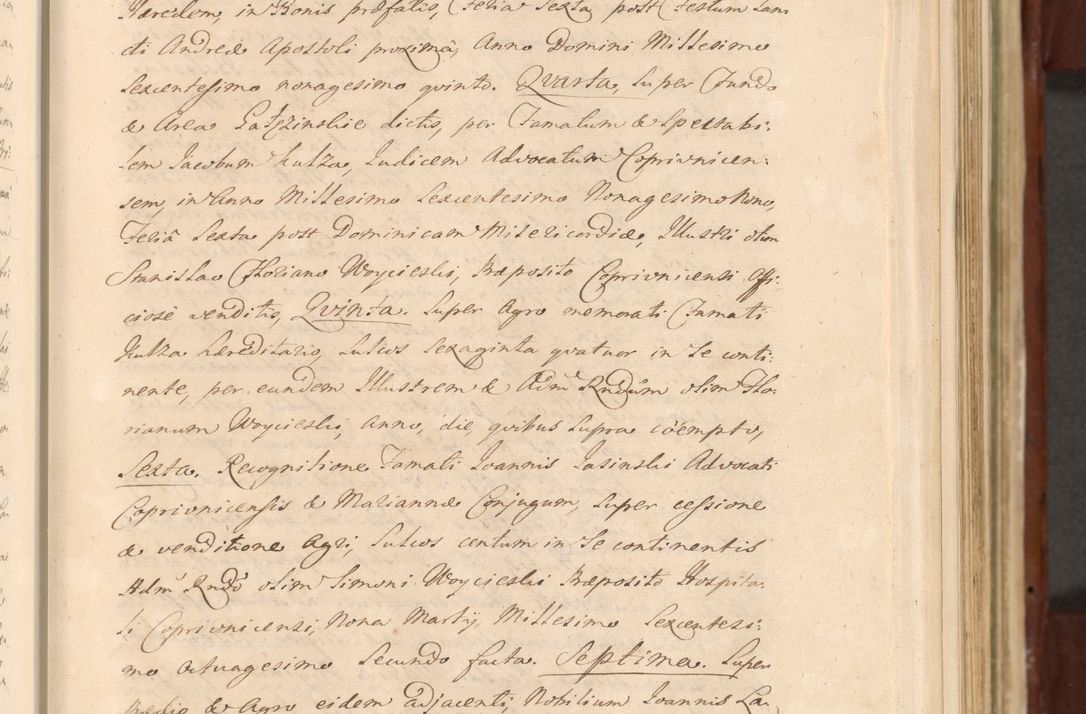 Hæredem, in Bonis præfatis, Feria Sexta post Festum San
cti Andreæ Apostoli proximâ, Anno Domini Millesimo
Sexcentesimo nonagesimo qvinto. Qvarta, Super Fundo
& Area Gałczinskie dictis, per Famatum & Spectabi:
lem Iacobum Kulza, Iudicem Advocatum Coprivnicen:
sem, in Anno Millesimo Sexcentesimo Nonagesimo Nono,
Feriâ Sexta post Dominicam Misericordiæ, Illustri olim
Stanislao Floriano Woycieski, Præposito Coprivnicensi Offi:
ciose venditis, Qvinta. Super Agro memorati Famati
Kulza hæreditario, Sulcos Sexaginta qvatuor in Se conti:
nente, per eundem Illustrem & Adm̃ Rndũm olim Flo:
rianum Woycieski, Anno, die, qvibus Supra coempto,
Sexta. Recognitione Famati Ioannis Iasinski Advocati
Coprivnicensis & Mariannæ Conjugum, Super cessione
& venditione Agri, Sulcos centum in Se continentis
Adm̃ Rndõ olim Simoni Woycieski Præposito Hospita:
li Coprivnicensi, Nona Martij, Millesimo Sexcentesi:
mo Octuagesimo Secundo facta. Septima. Super
Prædio & Agro eidem adjacenti, Nobilium Ioannis La: